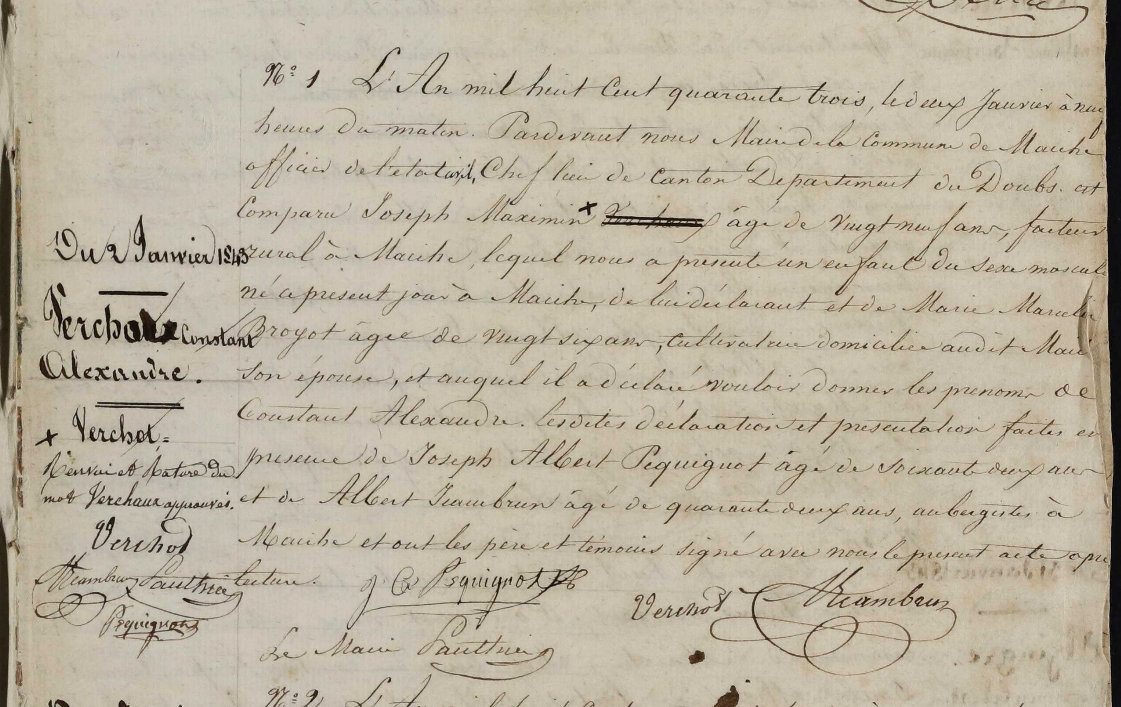 N.º 1 L'An mil huit cent quarante trois, le deux Janvier à neuf
heures du matin. Pardevant nous Maire de la Commune de Maiche
officier de l'etat civil, Chef lieu de Canton Departement du Doubs. est
Comparu Joseph Maximin + Verchaux âgé de vingt neuf ans, facteur
rural à Maiche, lequel nous a présenté un enfant du sexe masculin
né ce present jour à Maiche, de lui déclarant et de Marie Marcelin
Broyot âgée de vingt six ans, cultivatrice domiciliée audit Mai
son épouse, et auquel il a déclaré vouloir donner les prenoms de
Constant Alexandre. lesdites déclaration et presentation faites en
presence de Joseph Albert Pequignot âgé de soixante deux ans
et de Albert âgé de quarante deux ans, aubergistes à
Maiche et ont les père et témoins signé avec nous le present acte apr
lecture.
Pequignot
Verchot
Le Maire Pauthier
Du 2 Janvier 1843
Constant
Alexandre.
+ Verchot =
Renvoi et Rature du
mot Verchaux approuvés.
Verchot
Pauthier
Pequignot
N.º 2 L'An